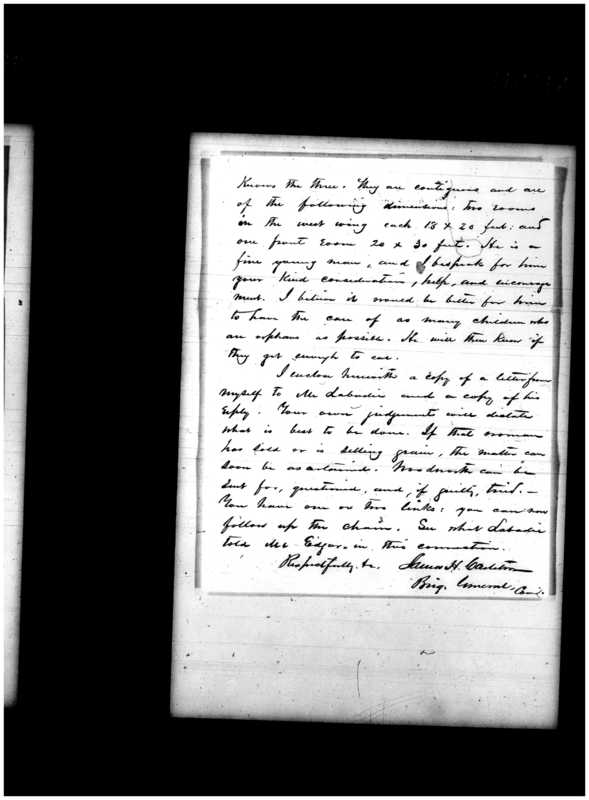 Knows the three. They are contiguous and are
of the following dimensions: two rooms
in the west wing each 18 x 20 feet: and
one front room 20 x 30 feet. He is a
fine young man, and I bespeak for him
your kind consideration, help, and encourage
ment. I believe it would be better for him
to have the care of as many children who
are orphans as possible. He will then know if
they get enough to eat.
I enclose herewith a copy of a letter from
myself to Mr Labadie and a copy of his
reply. Your own judgement will dictate
what is best to be done. If that woman
has sold or is selling grain, the matter can
soon be ascertained. Woodworth can be
sent for, questioned, and, if guilty, tried. —
You have one or two links: you can now
follow up the chain. See what Labadie
told Mr Edgar in this connection.
Respectfully &c. James H. Carleton
Brig. General, Com'd.